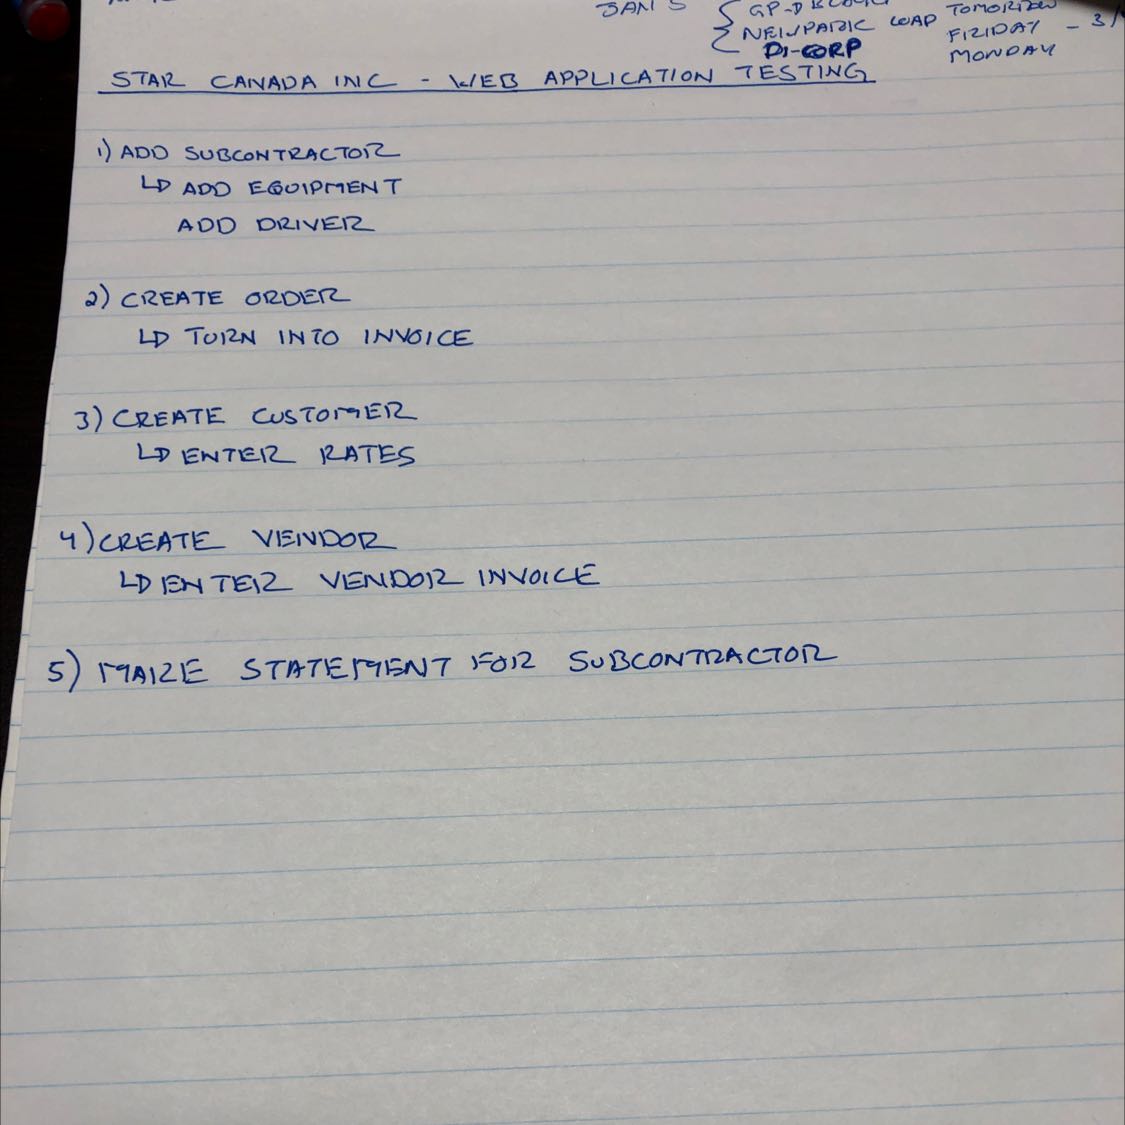 NEWPARK LOAD TOMORROW
FRIDAY - 3/
DI-CORP
MONDAY
STAR CANADA INC - WEB APPLICATION TESTING
1) ADD SUBCONTRACTOR
↳ ADD EQUIPMENT
ADD DRIVER
2) CREATE ORDER
↳ TURN INTO INVOICE
3) CREATE CUSTOMER
↳ ENTER RATES
4) CREATE VENDOR
↳ ENTER VENDOR INVOICE
5) MAKE STATEMENT FOR SUBCONTRACTOR